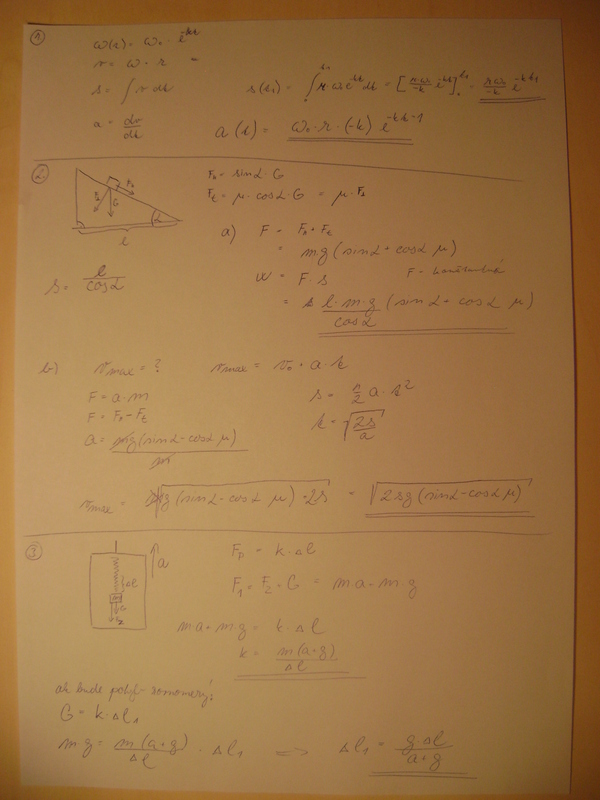 1
ω(t) = ω₀ · e^-kt
v = ω · r =
s = ∫ v dt
s(t₁) = ∫₀^t₁ r ω₀ e^-kt dt = [r·ω₀/-k e^-kt]₀^t₁ = r ω₀/-k e^-kt₁
a = dv/dt
a(t) = ω₀ · r · (-k)
2
Fₙ = sinα · G
Fₜ = μ · cosα · G = μ ·
G
α
l
s = l/cosα
a) F = Fₙ + Fₜ
= m g (sinα + cosα μ)
W = F · s
F - konštantná
= l·m·g/cosα (sinα + cosα μ)
b) vmax = ?
vmax = v₀ + a · t
F = a · m
F = Fₙ - Fₜ
a = mg(sinα - cosα μ)/m
t = √(2s/a)
vmax = √(g(sinα - cosα μ) · 2s) = √(2sg(sinα - cosα μ))
3
a
Δl
G
Fₚ = k · Δl
F₁ = F₂ + G = ma + m g
ma + m g = k · Δl
k = m(a+g)/Δl
ak bude pohyb rovnomerný:
G = k · Δl₁
m g = m(a+g)/Δl · Δl₁ => Δl₁ = g Δl/a+g